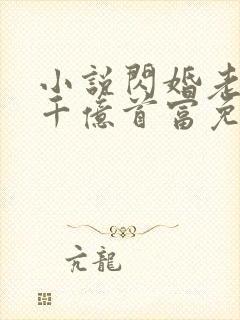 小說閃婚老
千億首富免
亢龍